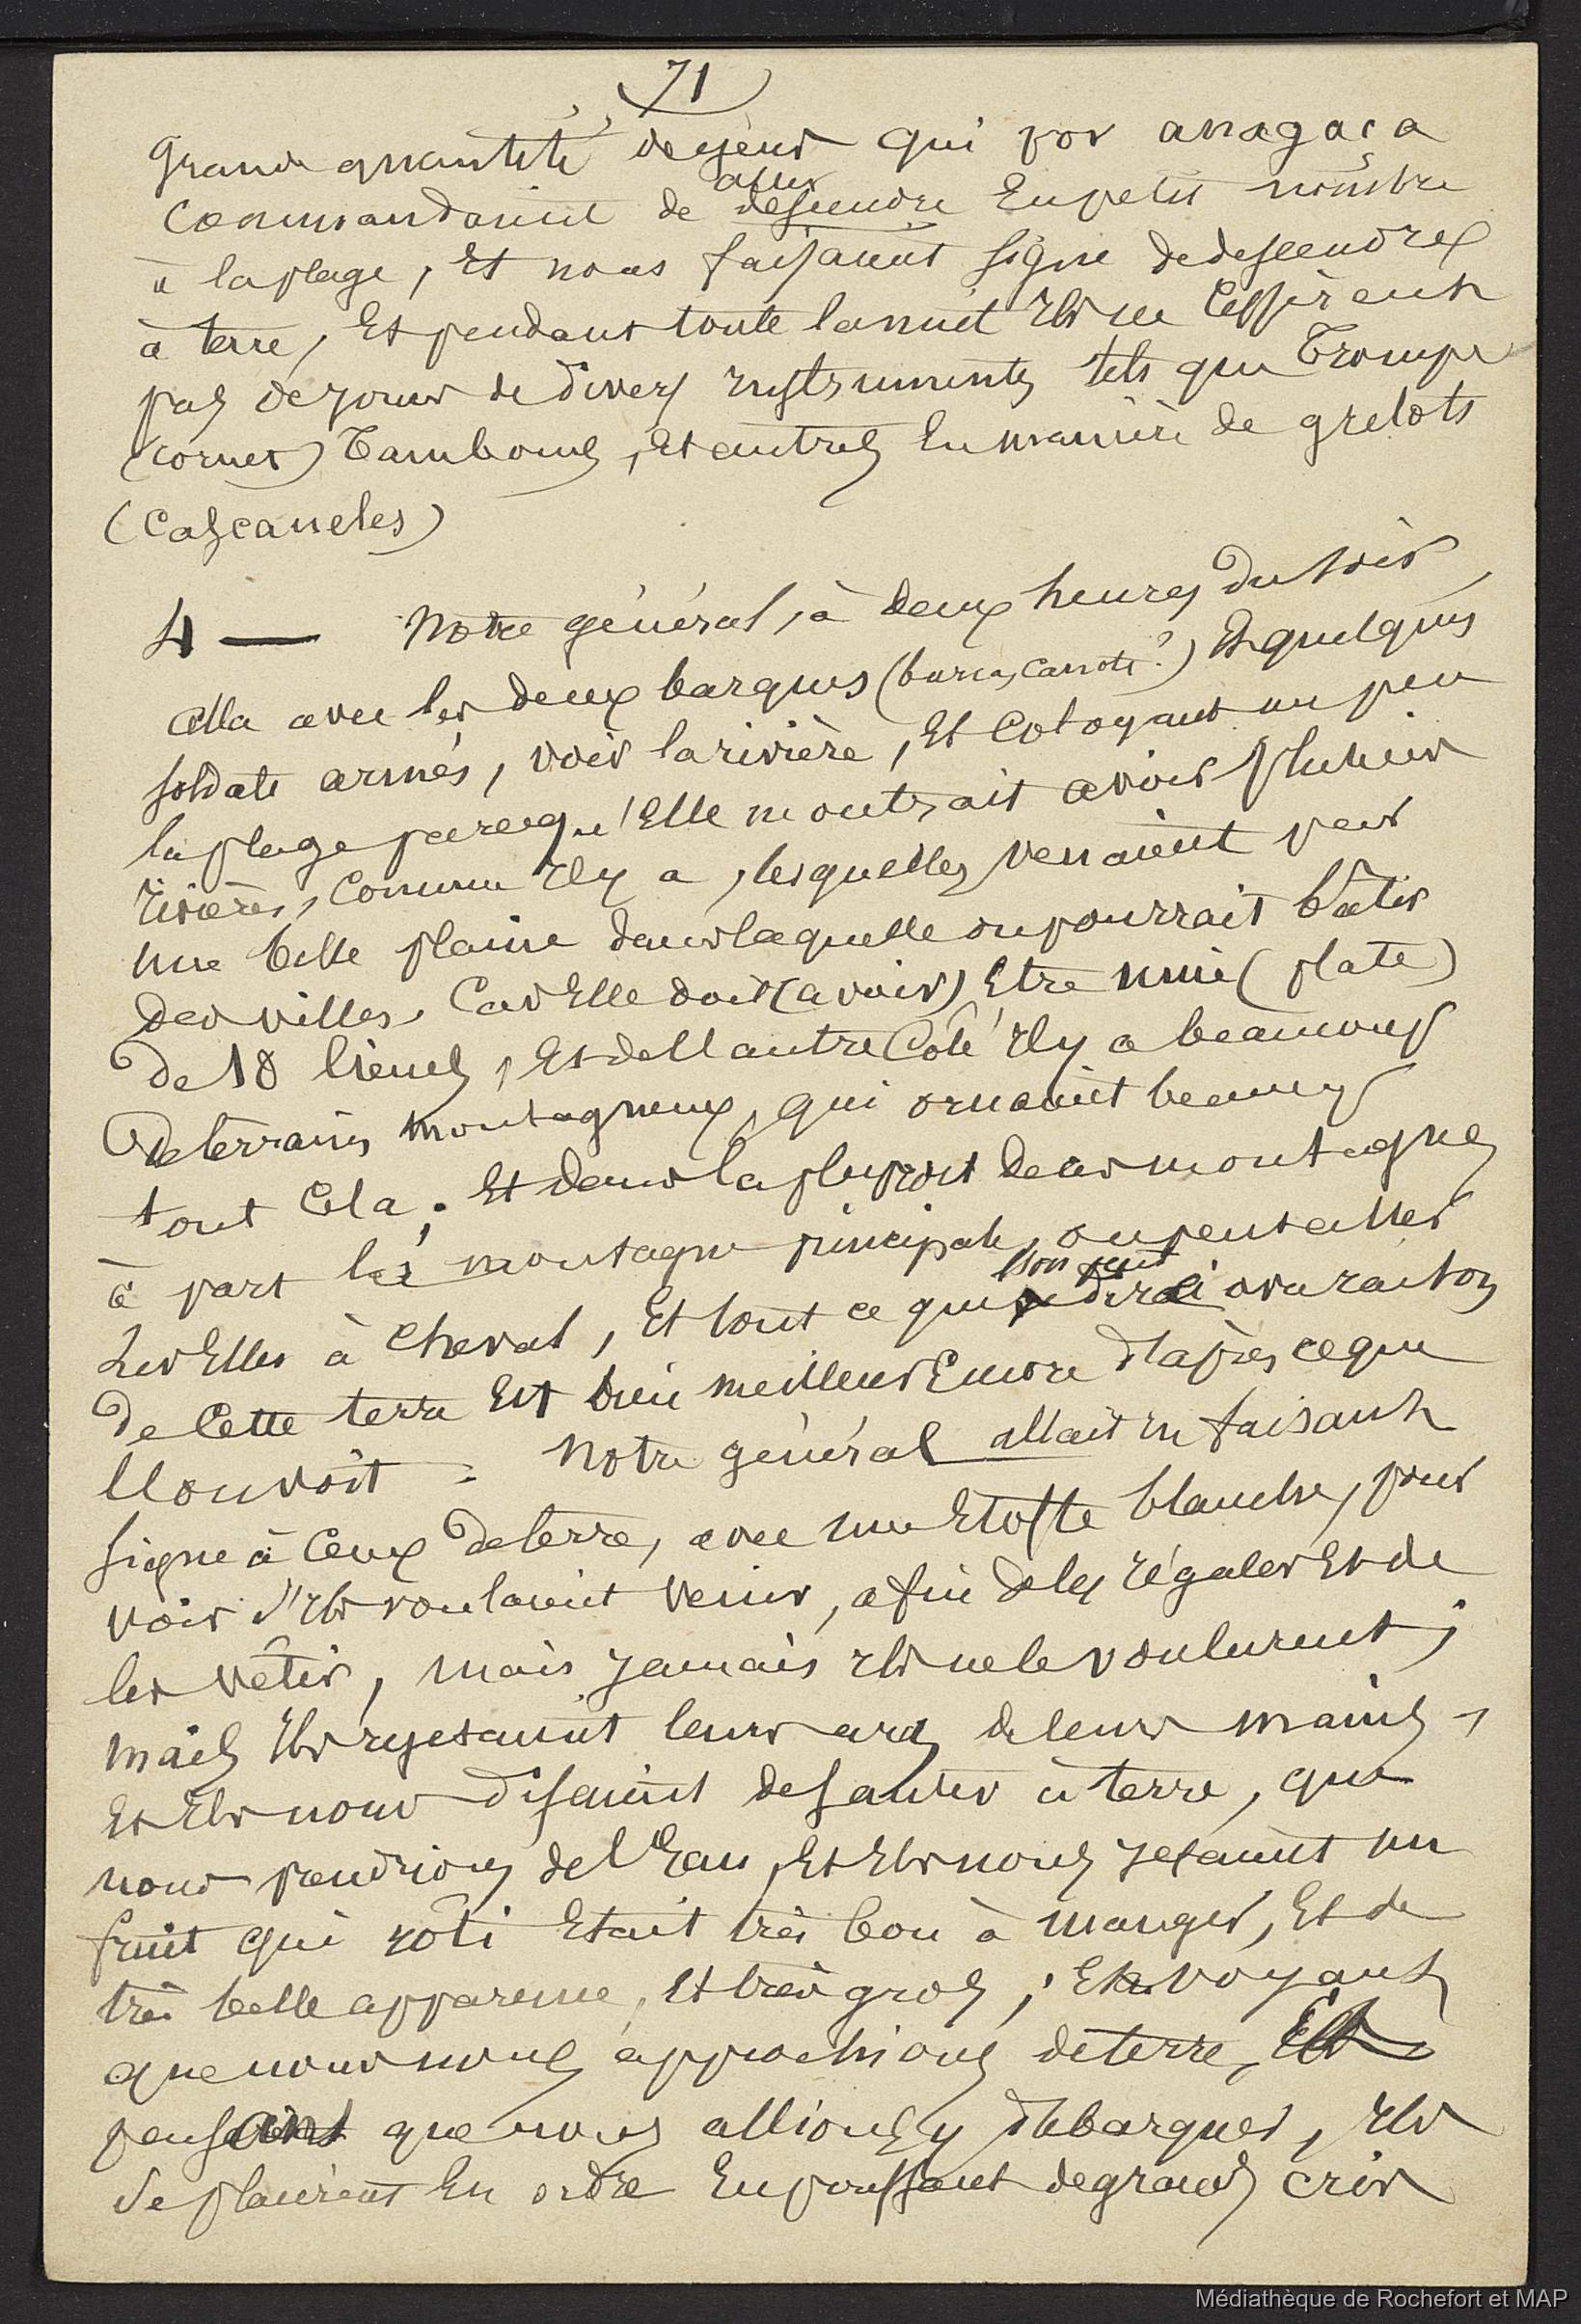 71
grande quantité de gens qui por anagaca
commandaient de descendre En petit nombre
aller
à la plage, Et nous faisaient signe de descendre
à terre, Et pendant toute la nuit Ils ne cessèrent
pas de jouer de divers instruments tels que Trompe
(cornes) Tambours, Et autres En manière de grelots
(Cascaneles)
4 — Notre général, à deux heures du soir,
alla avec les deux barques (barcas, canots?) Et quelques
soldats armés, voir la rivière, Et Cotoyant un peu
la plage parcequ'Elle montrait avoir plusieurs
rivières, Comme Il y a, lesquelles venaient par
une belle plaine dans laquelle on pourrait bâtir
des villes. Car Elle doit (avoir) Etre unie (plate)
De 18 lieues, Et de l'autre Côté Il y a beaucoup
de terrains montagneux, qui ornaient beaucoup
tout Cela ; Et dans la plupart de ces montagnes
à part la montagne principale, on peut aller
sur Elles à Cheval, Et tout ce que l'on peut dire
De Cette terre Est bien meilleur Encore d'après ce que
l'on voit. Notre général allait En faisant
signe à Ceux de terre, avec une Etoffe blanche, pour
voir s'Ils voulaient venir, afin de les régaler Et de
les vêtir, mais jamais Ils ne le voulurent ;
mais Ils rejetaient leurs arcs de leurs mains,
Et Ils nous disaient de sauter à terre, que
nous prendrions de l'Eau, Et Ils nous jetaient un
fruit qui rôti Etait très bon à manger, Et de
très belle apparence, Et très gros ; Et voyant
que nous nous approchions de terre, Et
pensant que nous allions y débarquer, Ils
se placèrent En ordre En poussant de grands cris
Médiathèque de Rochefort et MAP